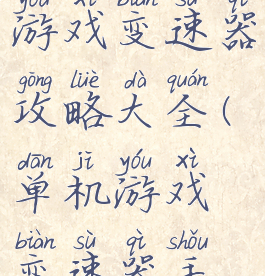 yóu xì biàn sù qì
游戏变速器
gōng lüè dà quán
攻略大全(
dān jī yóu xì
单机游戏
biàn sù qì shǒu
变速器手